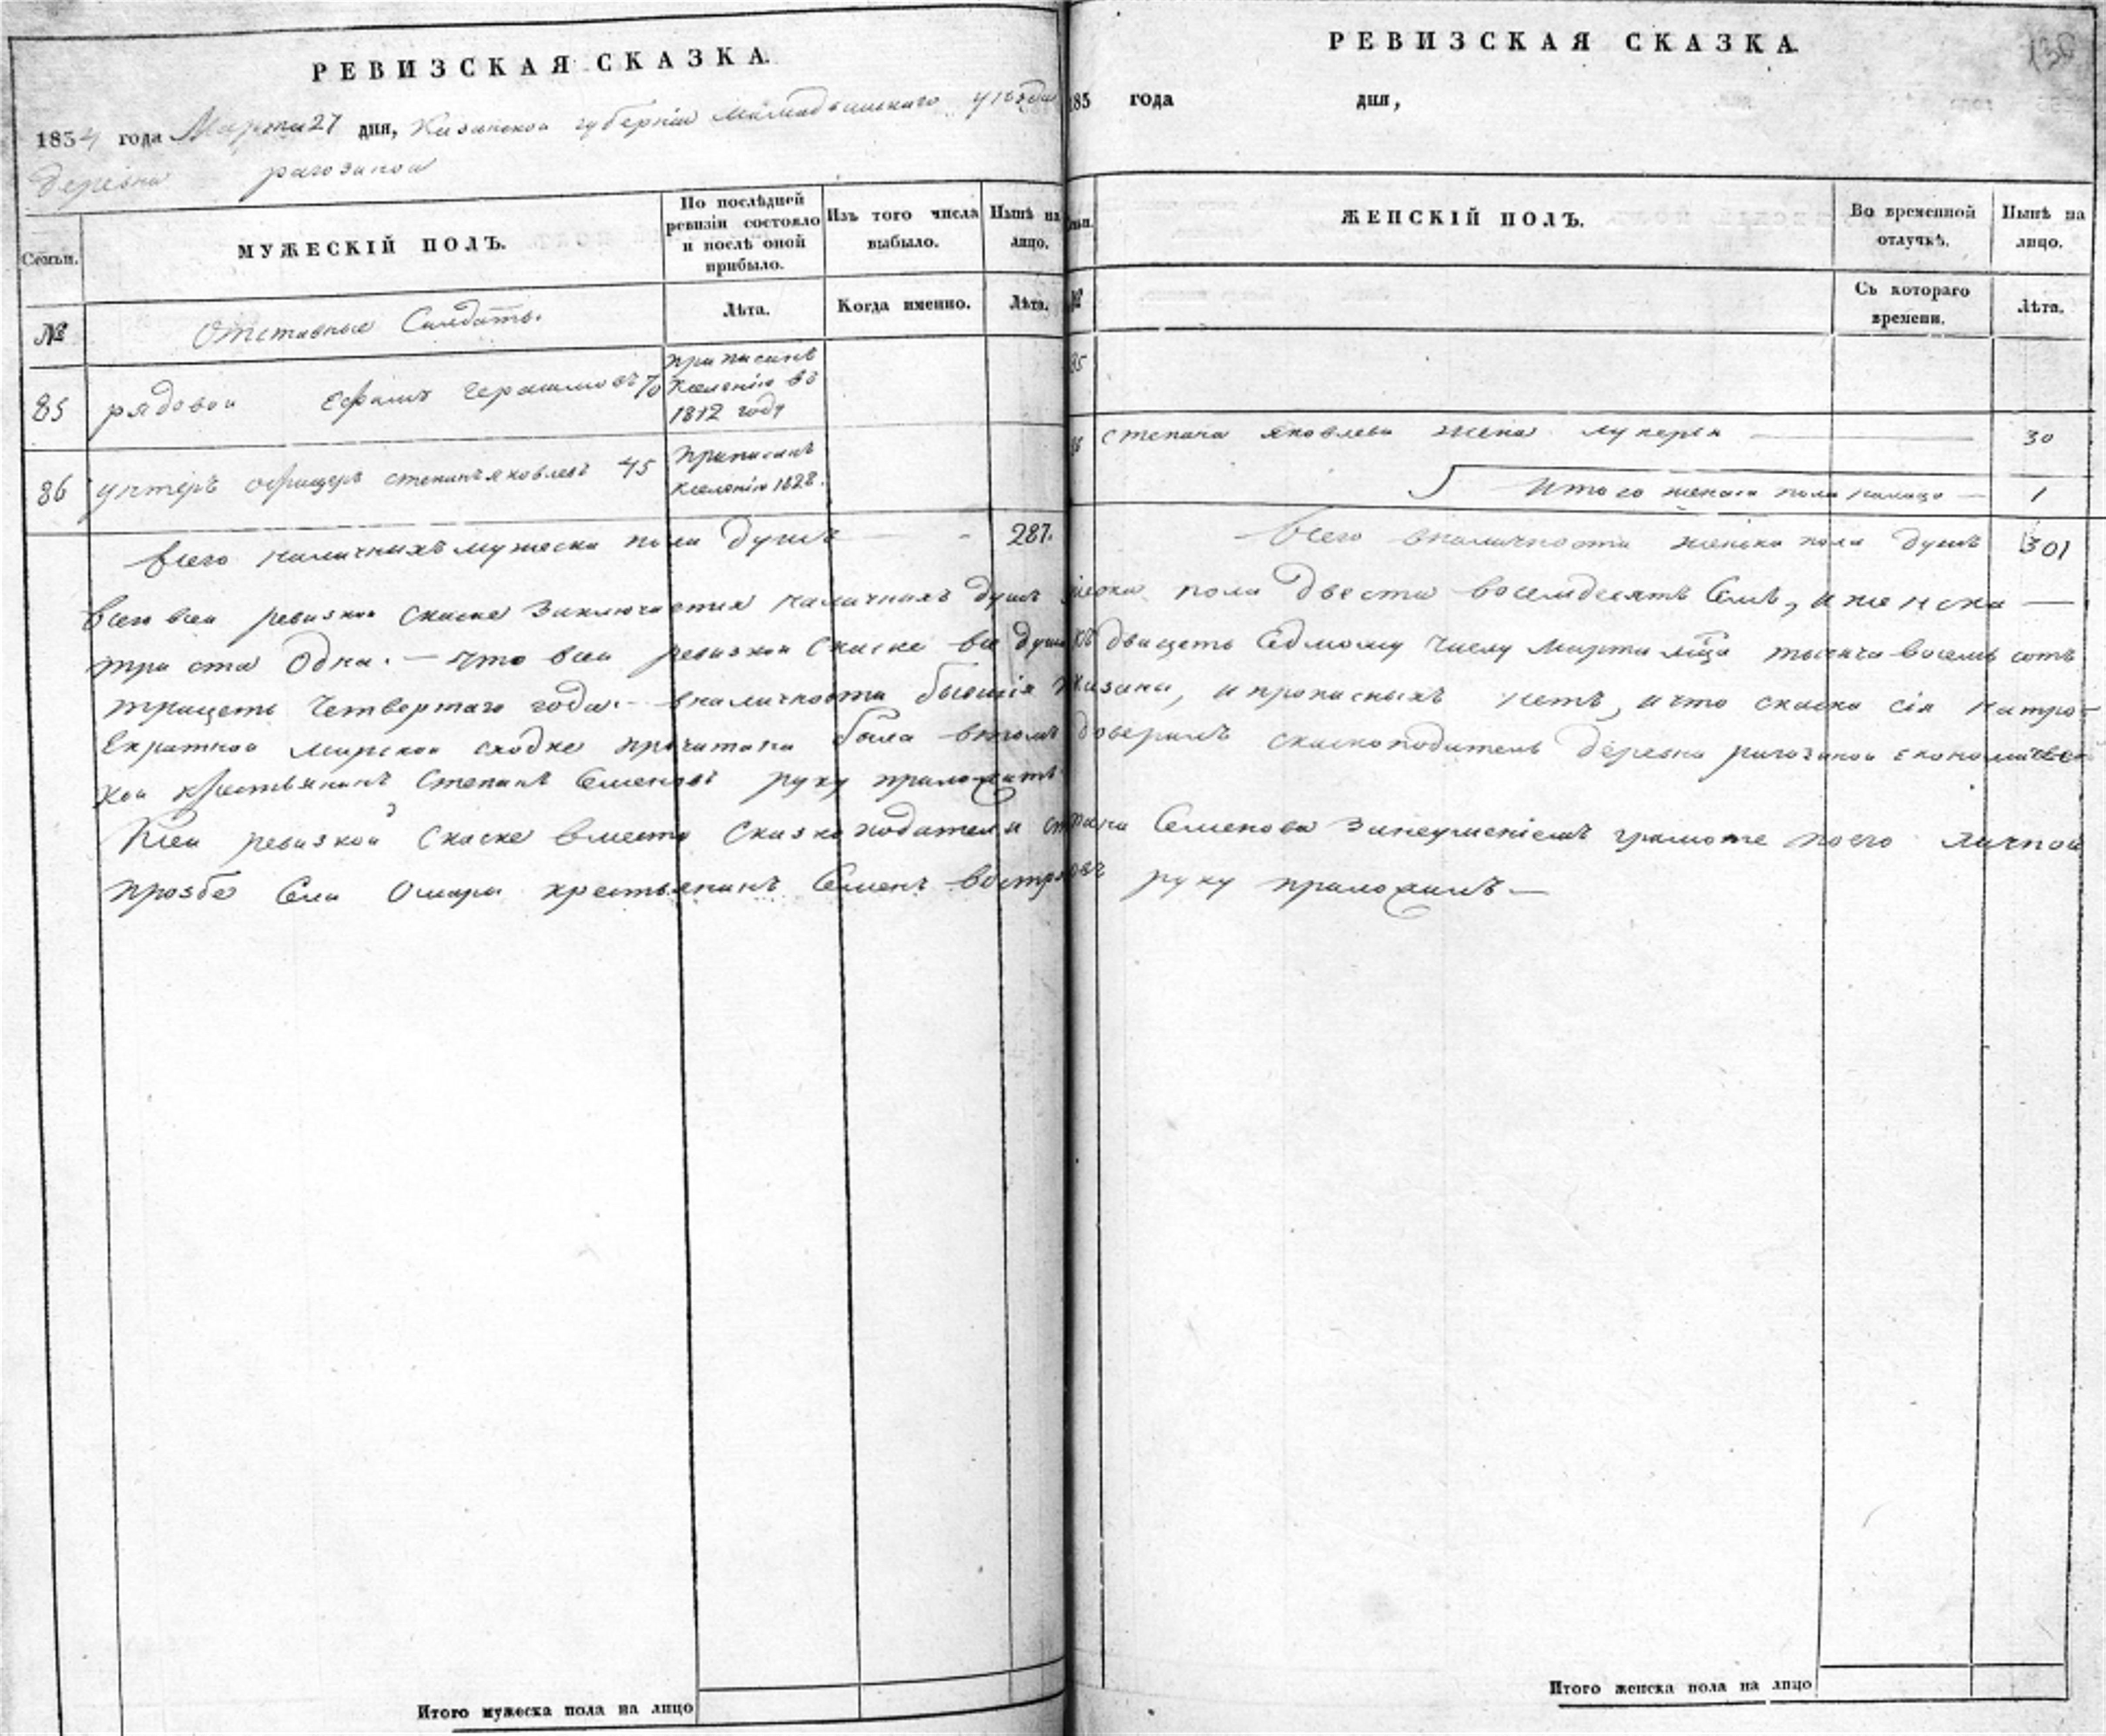 РЕВИЗСКАЯ СКАЗКА.
1834 года Марта 27 дня, Казанской губернии Мамадышскаго уезда
деревни рагозиной
Семьи.
МУЖЕСКІЙ ПОЛЪ.
По послѣдней ревизіи состояло и послѣ оной прибыло.
Изъ того числа выбыло.
Нынѣ на лицо.
№
Отставные Салдаты.
Лѣта.
Когда именно.
Лѣта.
85 рядовой Ефимъ Герасимовъ 70
приписанъ
Kселенію въ
1812 году
86 унтеръ офицеръ степанъ яковлевъ 45
Приписанъ
Kселенію 1828.
Всего наличныхъ мужеска пола душъ - 287.
РЕВИЗСКАЯ СКАЗКА.
130
183 года дня,
ЖЕНСКІЙ ПОЛЪ.
Во временной отлучкѣ.
Нынѣ на лицо.
№
Съ котораго времени.
Лѣта.
85
86 степана яковлева жена лукерья — 30
Итого женска пола налицо — 1
Всего вналичности женска пола душъ 301
Всего всей ревизкой скаске заключается наличныхъ душъ мужска пола Двести восемдесятъ Семь, и женска —
три ста Одна. — что всей ревизкой Скаске все души къ двацеть Седмому Числу Марта мца тысяча восемь сотъ
трицеть Четвертаго года. - вналичности бывшія показаны, и прописныхъ нетъ, и что скаска сія натро-
Екратной мирской сходке прочитана была втомъ доверилъ скаскоподатель деревни рагозиной економичес-
кой крестьянинъ Степанъ Семеновъ руку приложить
Kсей ревизкой Скаске вместо Сказкоподателя степана Семенова занеумениемъ грамоте поего личной
прозбе Села Омары крестьянинъ Семенъ востряковъ руку приложилъ —
Итого мужеска пола на лицо
Итого женска пола на лицо